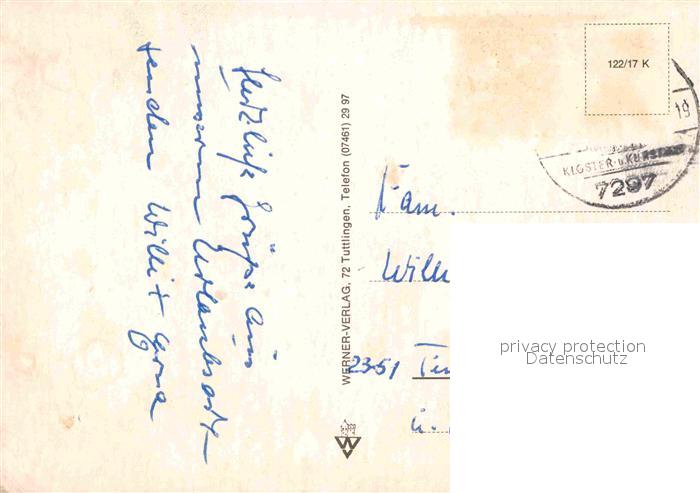 Herzliche Grüße aus
unserem Urlaubsort
senden Willi +
WERNER-VERLAG, 72 Tuttlingen, Telefon (07461) 29 97
122/17 K
19
KLOSTER- u. KURSTADT
7297
Fam.
Willi
2351
privacy protection
Datenschutz